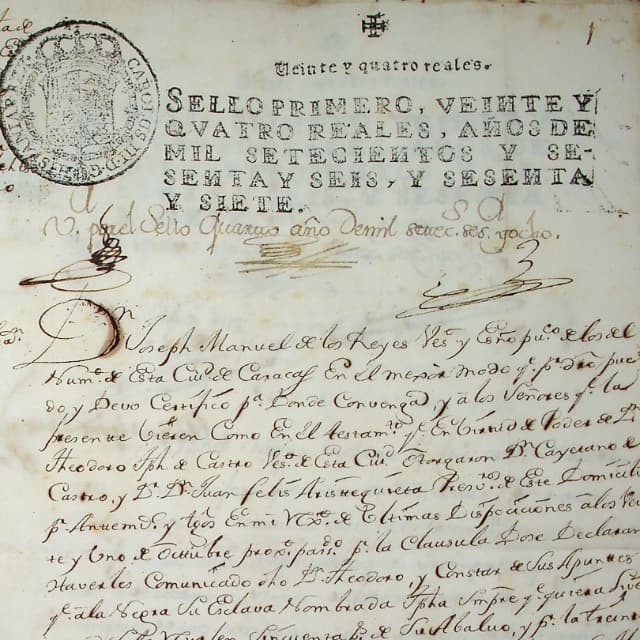 1
CAROLUS III D G HISPANIAR
Veinte y quatro reales.
SELLO PRIMERO, VEINTE Y
QVATRO REALES, AÑOS DE
MIL SETECIENTOS Y SE-
SENTA Y SEIS, Y SESENTA
Y SIETE.
V. por el Sello Quarto año De mil setec. ses. y ocho.
Dn Joseph Manuel de los Reyes Vesº y Esno puco de los del
Numº de Esta Ciud de Caracas En el mejor modo q. pr dro pue
do, y Devo Certifico pa Donde Convenga, y a los Señores q. la
presente Vieren Como En el testamto q. En Virtud de Poder de Dn
Theodoro Jph de Castro Vesº de Esta Ciud Otorgaron Dn Cayetano de
Castro, y Dr Dn Juan Felis Aristeguieta Presvro de Este Domicilio
pr Antemi, y tgos En mi Rexº de Ultimas Dispociciones a los Vein
te y Uno de Octubre proxº passdo pr la Clausula Dose Declaran
Haverles Comunicado dho Dn Theodoro, y Constar de Sus Apuntes
q. a la Negra Su Esclava Nombrada Jpha Smpre q. quiera
Cincuenta de Su Abaluo, y pr la